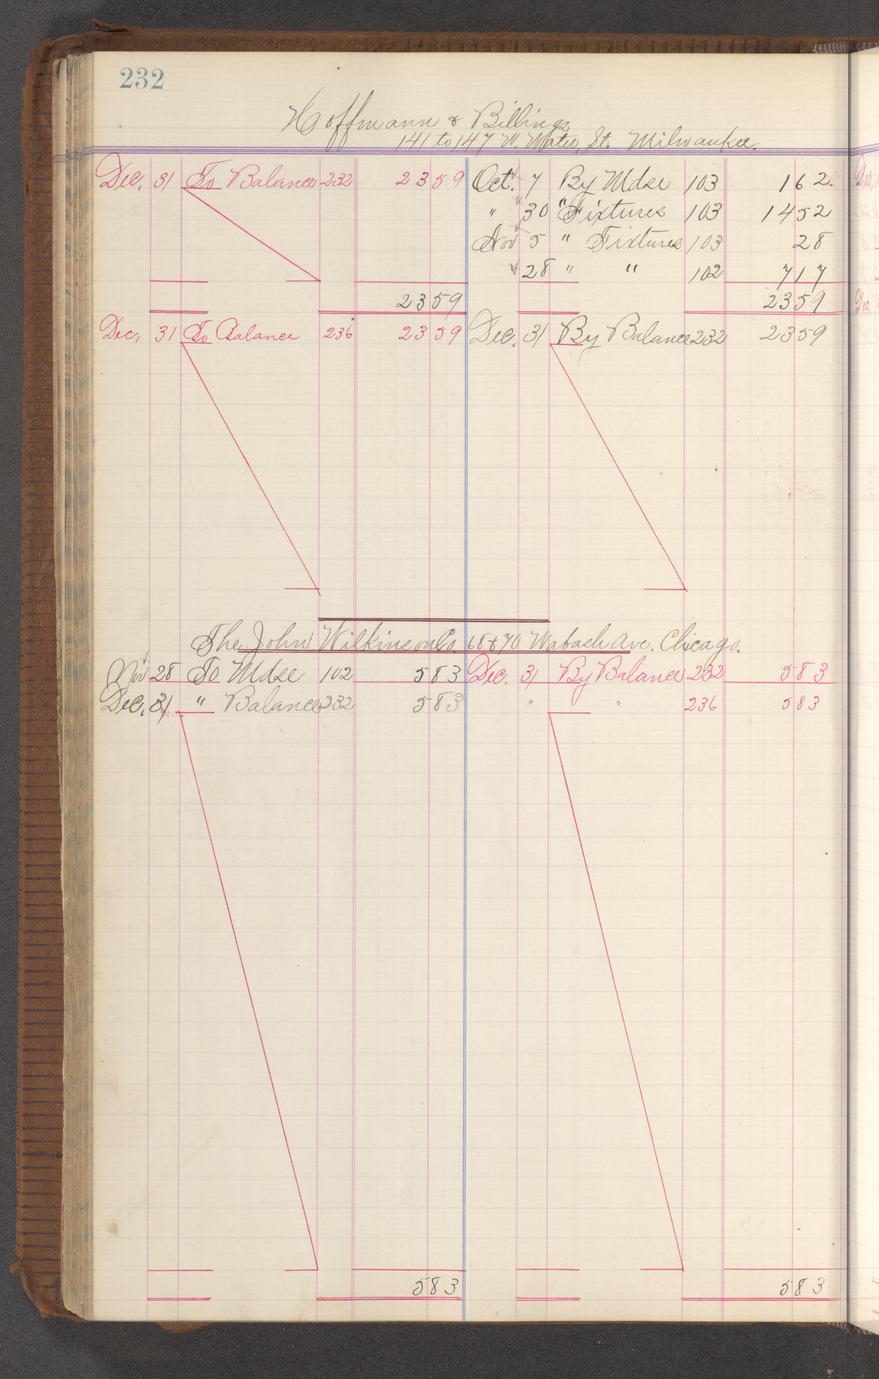 232
Hoffmann & Billings
141 to 147 W. Water, St. Milwaukee.
Dec, 31 To Balance 232 2359 Oct. 7 By Mdse 103 162.
" 30 " Fixtures 103 1452
Nov 5 " Fixtures 103 28
28 " " 102 717
2359 2359
Dec, 31 To Balance 236 2359 Dec. 31 By Balance 232 2359
The John Wilkinson Co 68 & 70 Wabash Ave. Chicago.
Nov 28 To Mdse 102 583 Dec. 31 By Balance 232 583
Dec, 31 " Balance 232 583 " " 236 583
583 583